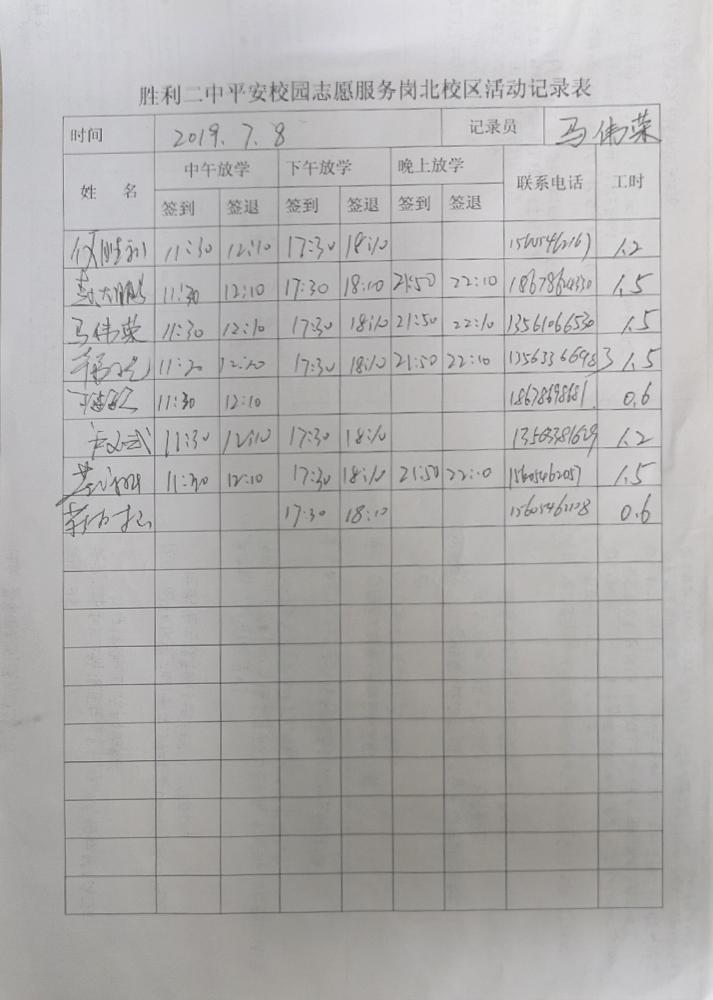 胜利二中平安校园志愿服务岗北校区活动记录表
时间 2019.7.8 记录员 马伟荣
姓 名 中午放学 下午放学 晚上放学 联系电话 工时
签到 签退 签到 签退 签到 签退
11:30 12:10 17:30 18:10 1.2
11:30 12:10 17:30 18:10 21:50 22:10 1.5
马伟荣 11:30 12:10 17:30 18:10 21:50 22:10 13561066530 1.5
12:10 17:30 18:10 21:50 22:10 1.5
11:30 12:10 18678698681 0.6
11:30 12:10 17:30 18:10 1.2
11:30 12:10 17:30 18:10 21:50 22:10 15605462057 1.5
17:30 18:10 0.6